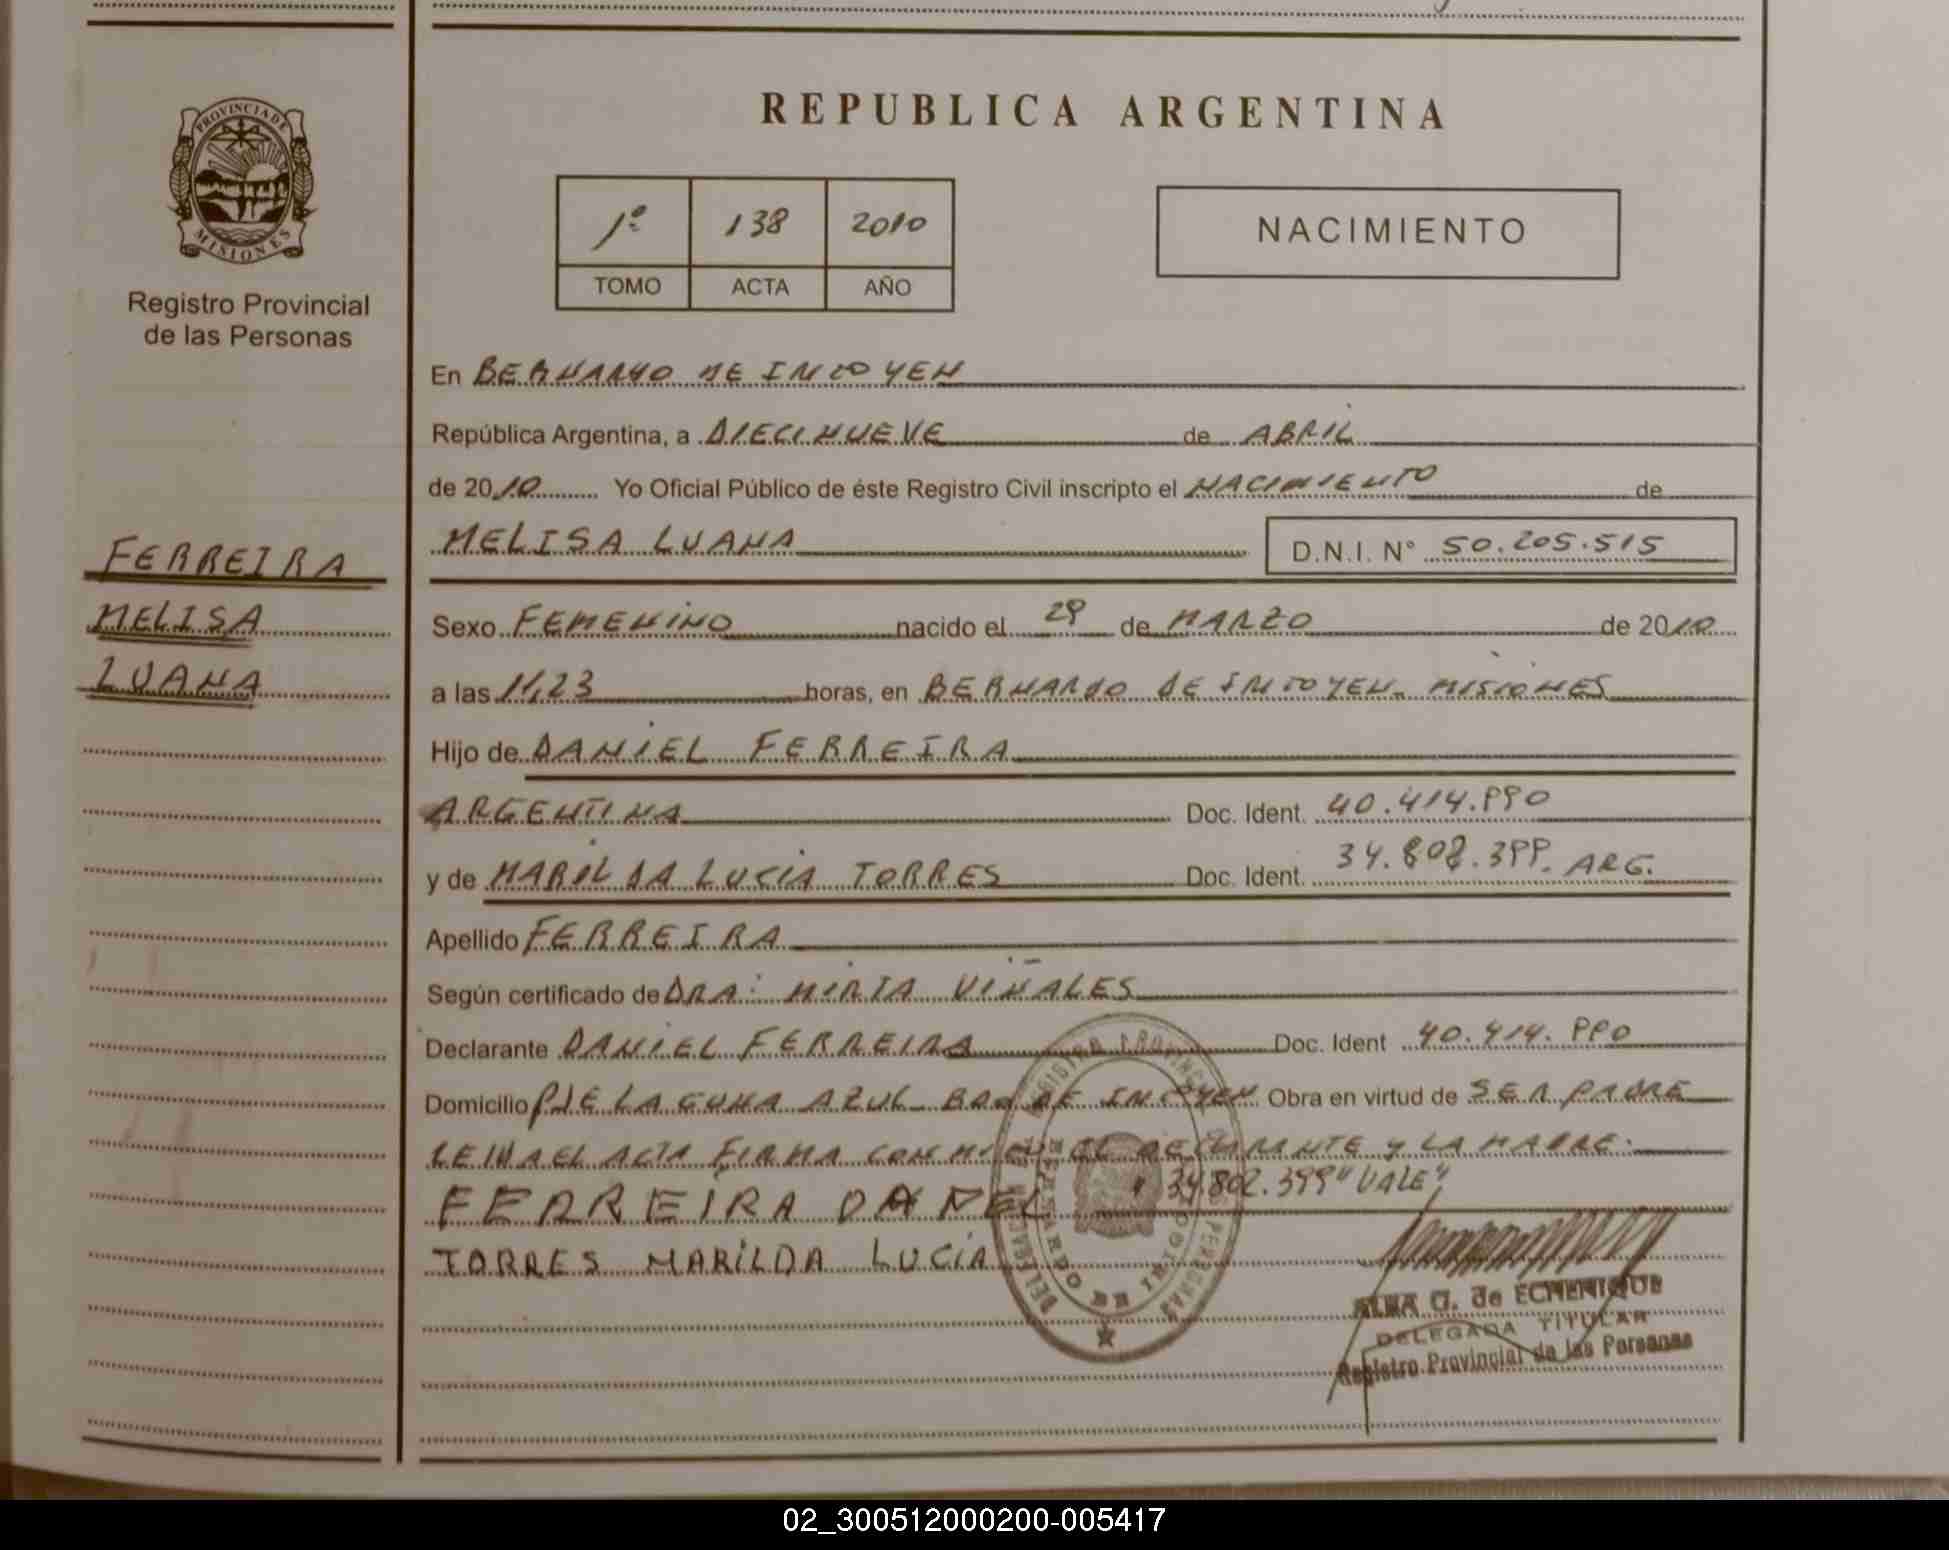 PROVINCIA DE
MISIONES
Registro Provincial
de las Personas
REPUBLICA ARGENTINA
1º 138 2010
TOMO ACTA AÑO
NACIMIENTO
En BERNARDO DE IRIGOYEN
República Argentina, a DIECINUEVE de ABRIL
de 2010 Yo Oficial Público de éste Registro Civil inscripto el NACIMIENTO de
MELISA LUANA D.N.I. N° 50.205.515
FERREIRA
MELISA
LUANA
Sexo FEMENINO nacido el 29 de MARZO de 2010
a las 11,23 horas, en BERNARDO DE IRIGOYEN - MISIONES
Hijo de DANIEL FERREIRA
ARGENTINA Doc. Ident. 40.414.990
y de MARILDA LUCIA TORRES Doc. Ident. 34.802.399. ARG.
Apellido FERREIRA
Según certificado de DRA: MIRTA VIÑALES
Declarante DANIEL FERREIRA Doc. Ident 40.414.990
Domicilio PJE LAGUNA AZUL BDO DE IRIGOYEN Obra en virtud de SER PADRE
LEIDA EL ACTA FIRMA CONMIGO EL DECLARANTE y LA MADRE.
FERREIRA DANIEL " 34.802.399 "VALE"
TORRES MARILDA LUCIA
ALBA G. de ECHENIQUE
DELEGADA TITULAR
Registro Provincial de las Personas
REGISTRO PROVINCIAL DE LAS PERSONAS
DELEGACION
BERNARDO DE IRIGOYEN
02_300512000200-005417